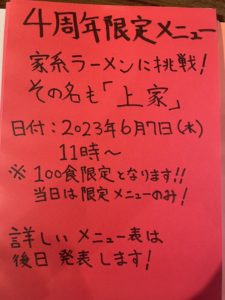 4周年限定メニュー
家系ラーメンに挑戦!
その名も「上家」
日付:2023年6月7日(水)
11時〜
※100食限定となります!!
当日は限定メニューのみ!
詳しいメニュー表は
後日発表します!